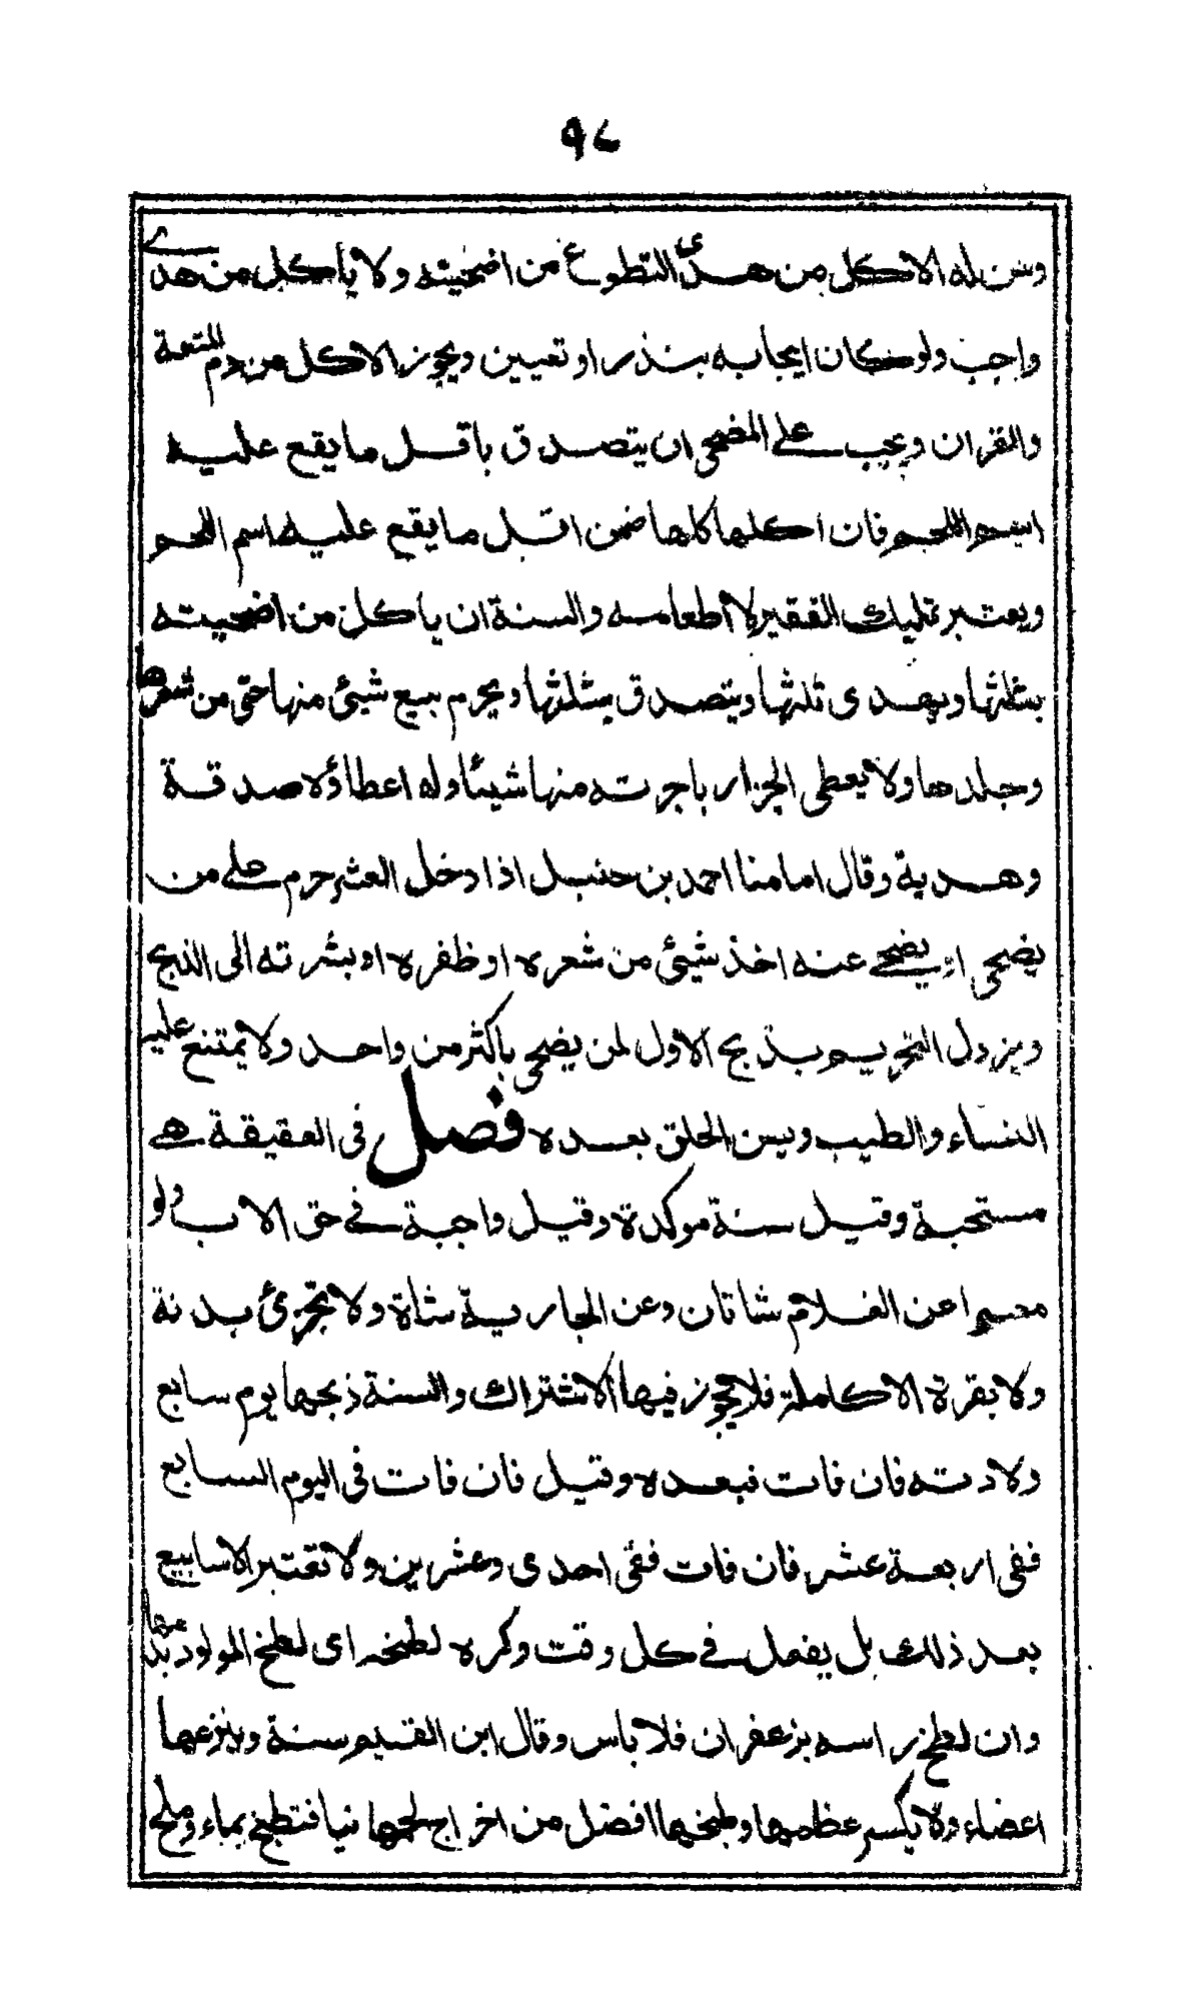 ٩٨
وسن له الاكل من هدي التطوع من اضحيته ولا ياكل من هدي
واجب ولو كان ايجابه بنذر او تعيين ويجوز الاكل من دم المتعة
والقران ويجب على المضحي ان يتصدق باقل ما يقع عليه
اسم اللحم فان اكلها كلها ضمن اقل ما يقع عليه اسم اللحم
ويعتبر تمليك الفقير لا اطعامه والسنة ان ياكل من اضحيته
بثلثها ويهدى ثلثها ويتصدق بثلثها ويحرم بيع شيئ منها حتى من شعرها
وجلدها ولا يعطى الجزار باجرته منها شيئا وله اعطاؤه صدقة
وهدية وقال امامنا احمد بن حنبل اذا دخل العشر حرم على من
يضحي او يضحى عنه اخذ شيئ من شعره او ظفره او بشرته الى الذبح
ويزول التحريم بذبح الاول لمن يضحي باكثر من واحد ولا يمتنع عليه
النساء والطيب ويسن الحلق بعده فصل فى العقيقة هي
مستحبة وقيل سنة موكدة وقيل واجبة في حق الاب ولو
معسرا عن الغلام شاتان وعن الجارية شاة ولا تجزئ بدنة
ولا بقرة الا كاملة فلا يجوز فيها الاشتراك والسنة ذبحها يوم سابع
ولادته فان فات فبعده وقيل فان فات فى اليوم السابع
ففى اربعة عشر فان فات ففى احدى وعشرين ولا تعتبر الاسابيع
بعد ذلك بل يفعل في كل وقت وكره لطخه اى لطخ المولود بدمها
وان لطخ راسه بزعفران فلا باس وقال ابن القيم سنة وينزعها
اعضاء ولا يكسر عظمها وطبخها افضل من اخراج لحمها نيا فتطبخ بماء وملح